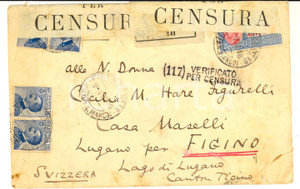 PER
CENSURA
CENSURA
241
Alla N. Donna
(117) VERIFICATO
PER CENSURA
Cecilia M. Hare Figurelli
Casa Maselli
Lugano per FIGINO
Lago di Lugano
SVIZZERA
Canton Ticino